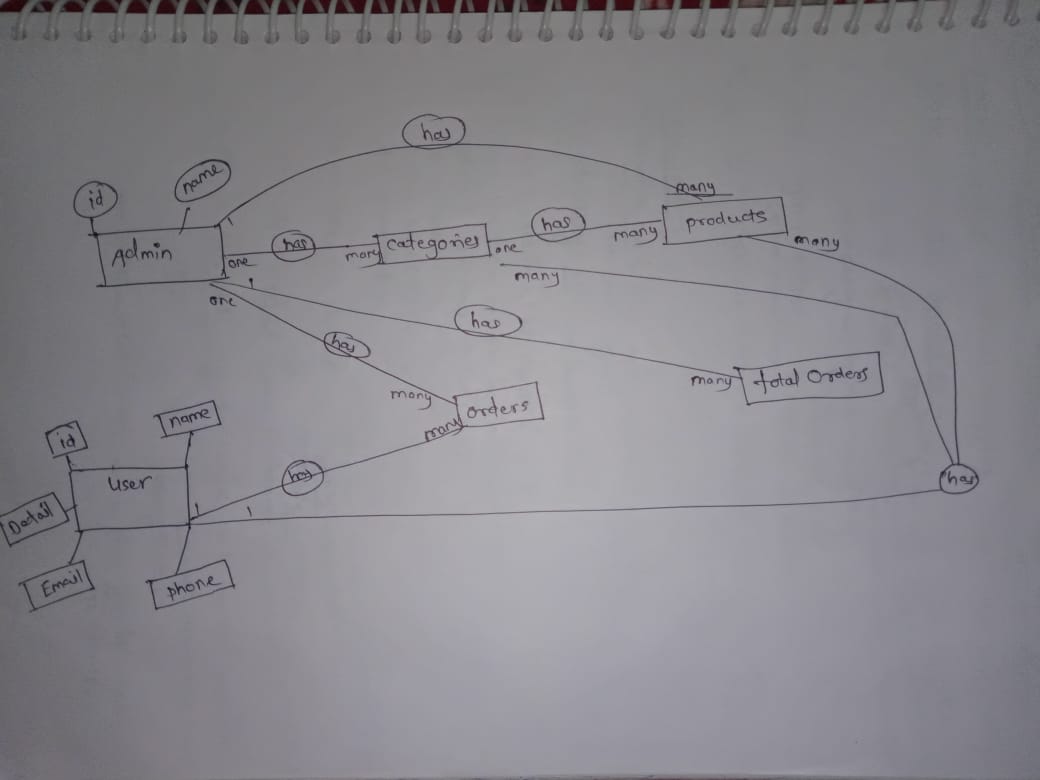 has
id
name
many
Admin
1
has
categories
has
products
one
many
one
many
many
one
1
many
has
has
many
total Orders
many
orders
many
name
id
user
has
has
Detail
1
1
Email
phone